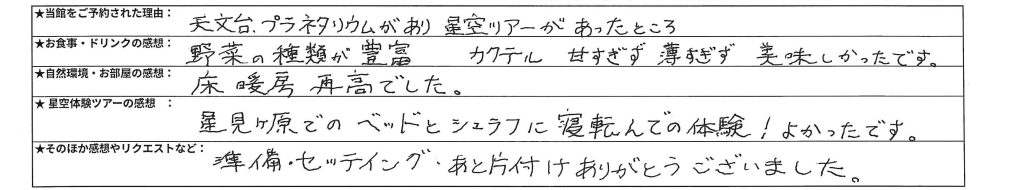 ★当館をご予約された理由： 天文台、プラネタリウムがあり 星空ツアーが あったところ
★お食事・ドリンクの感想： 野菜の種類が豊富 カクテル 甘すぎず 薄すぎず 美味しかったです。
★自然環境・お部屋の感想： 床暖房 再高でした。
★星空体験ツアーの感想 ： 星見ヶ原での ベッドとシュラフに 寝転んでの体験！よかったです。
★そのほか感想やリクエストなど： 準備・セッテイング・あと片付けありがとうございました。